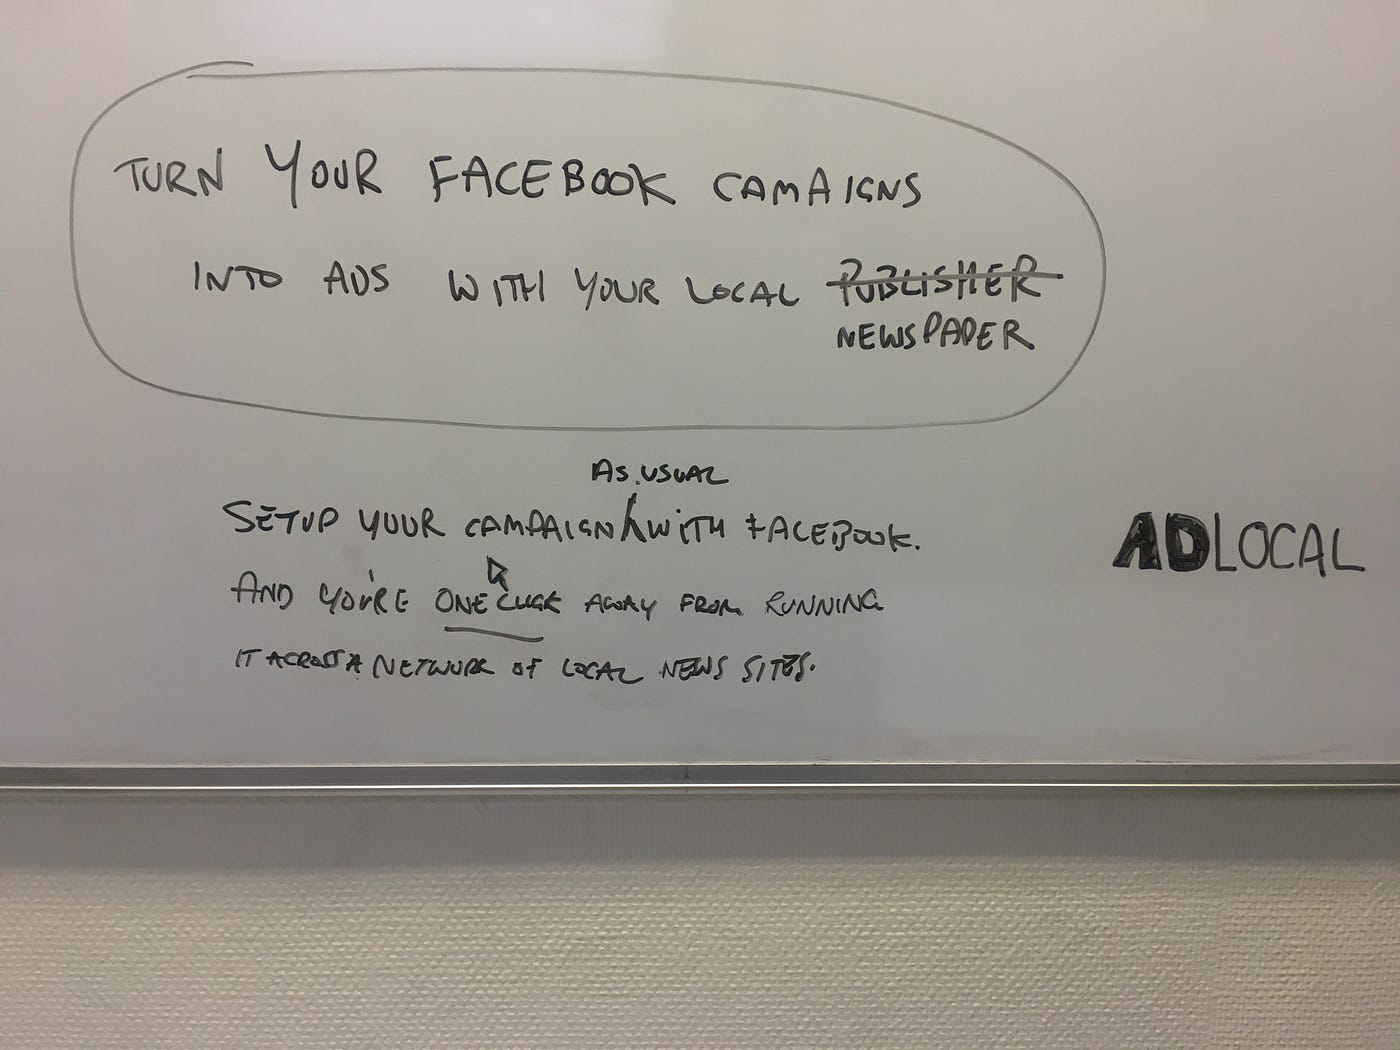 TURN YOUR FACEBOOK CAMAIGNS
INTO ADS WITH YOUR LOCAL PUBLISHER
NEWSPAPER
AS USUAL
SETUP YOUR CAMPAIGN WITH FACEBOOK.
AND YOU'RE ONE CLICK AWAY FROM RUNNING
IT ACROSS A NETWORK OF LOCAL NEWS SITES.
ADLOCAL